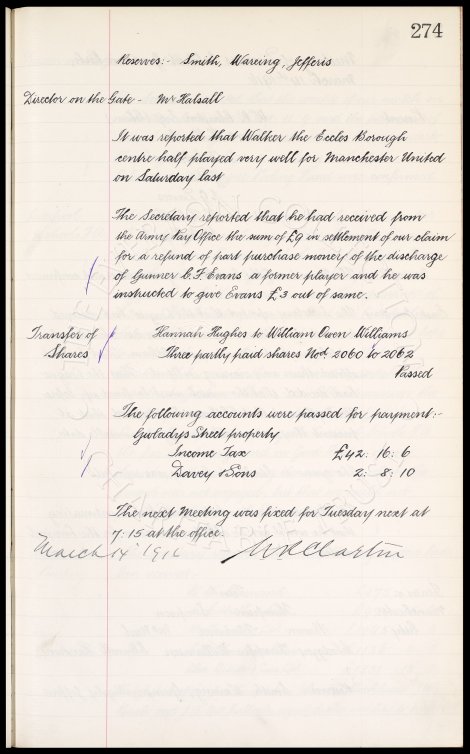 274
Reserves:- Smith, Wareing, Jefferis
Director on the Gate - Mr Halsall
It was reported that Walker the Eccles Borough
centre half played very well for Manchester United
on Saturday last
The Secretary reported that he had received from
the Army Pay Office the sum of £9 in settlement of our claim
for a refund of part purchase money of the discharge
of Gunner C.F. Evans a former player and he was
instructed to give Evans £3 out of same.
Transfer of Hannah Hughes to William Owen Williams
Shares Three partly paid shares Nos. 2060 to 2062
Passed
The following accounts were passed for payment:-
Gwladys Street property
Income Tax £42: 16: 6
Davey & Sons 2: 8: 10
The next Meeting was fixed for Tuesday next at
7:15 at the office.
March 14 1916 W R Clayton